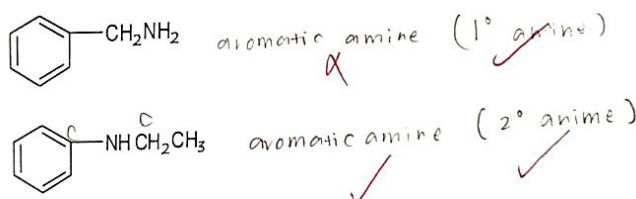 CH₂NH₂ aromatic amine (1° amine)
C C
NHCH₂CH₃ aromatic amine (2° anime)